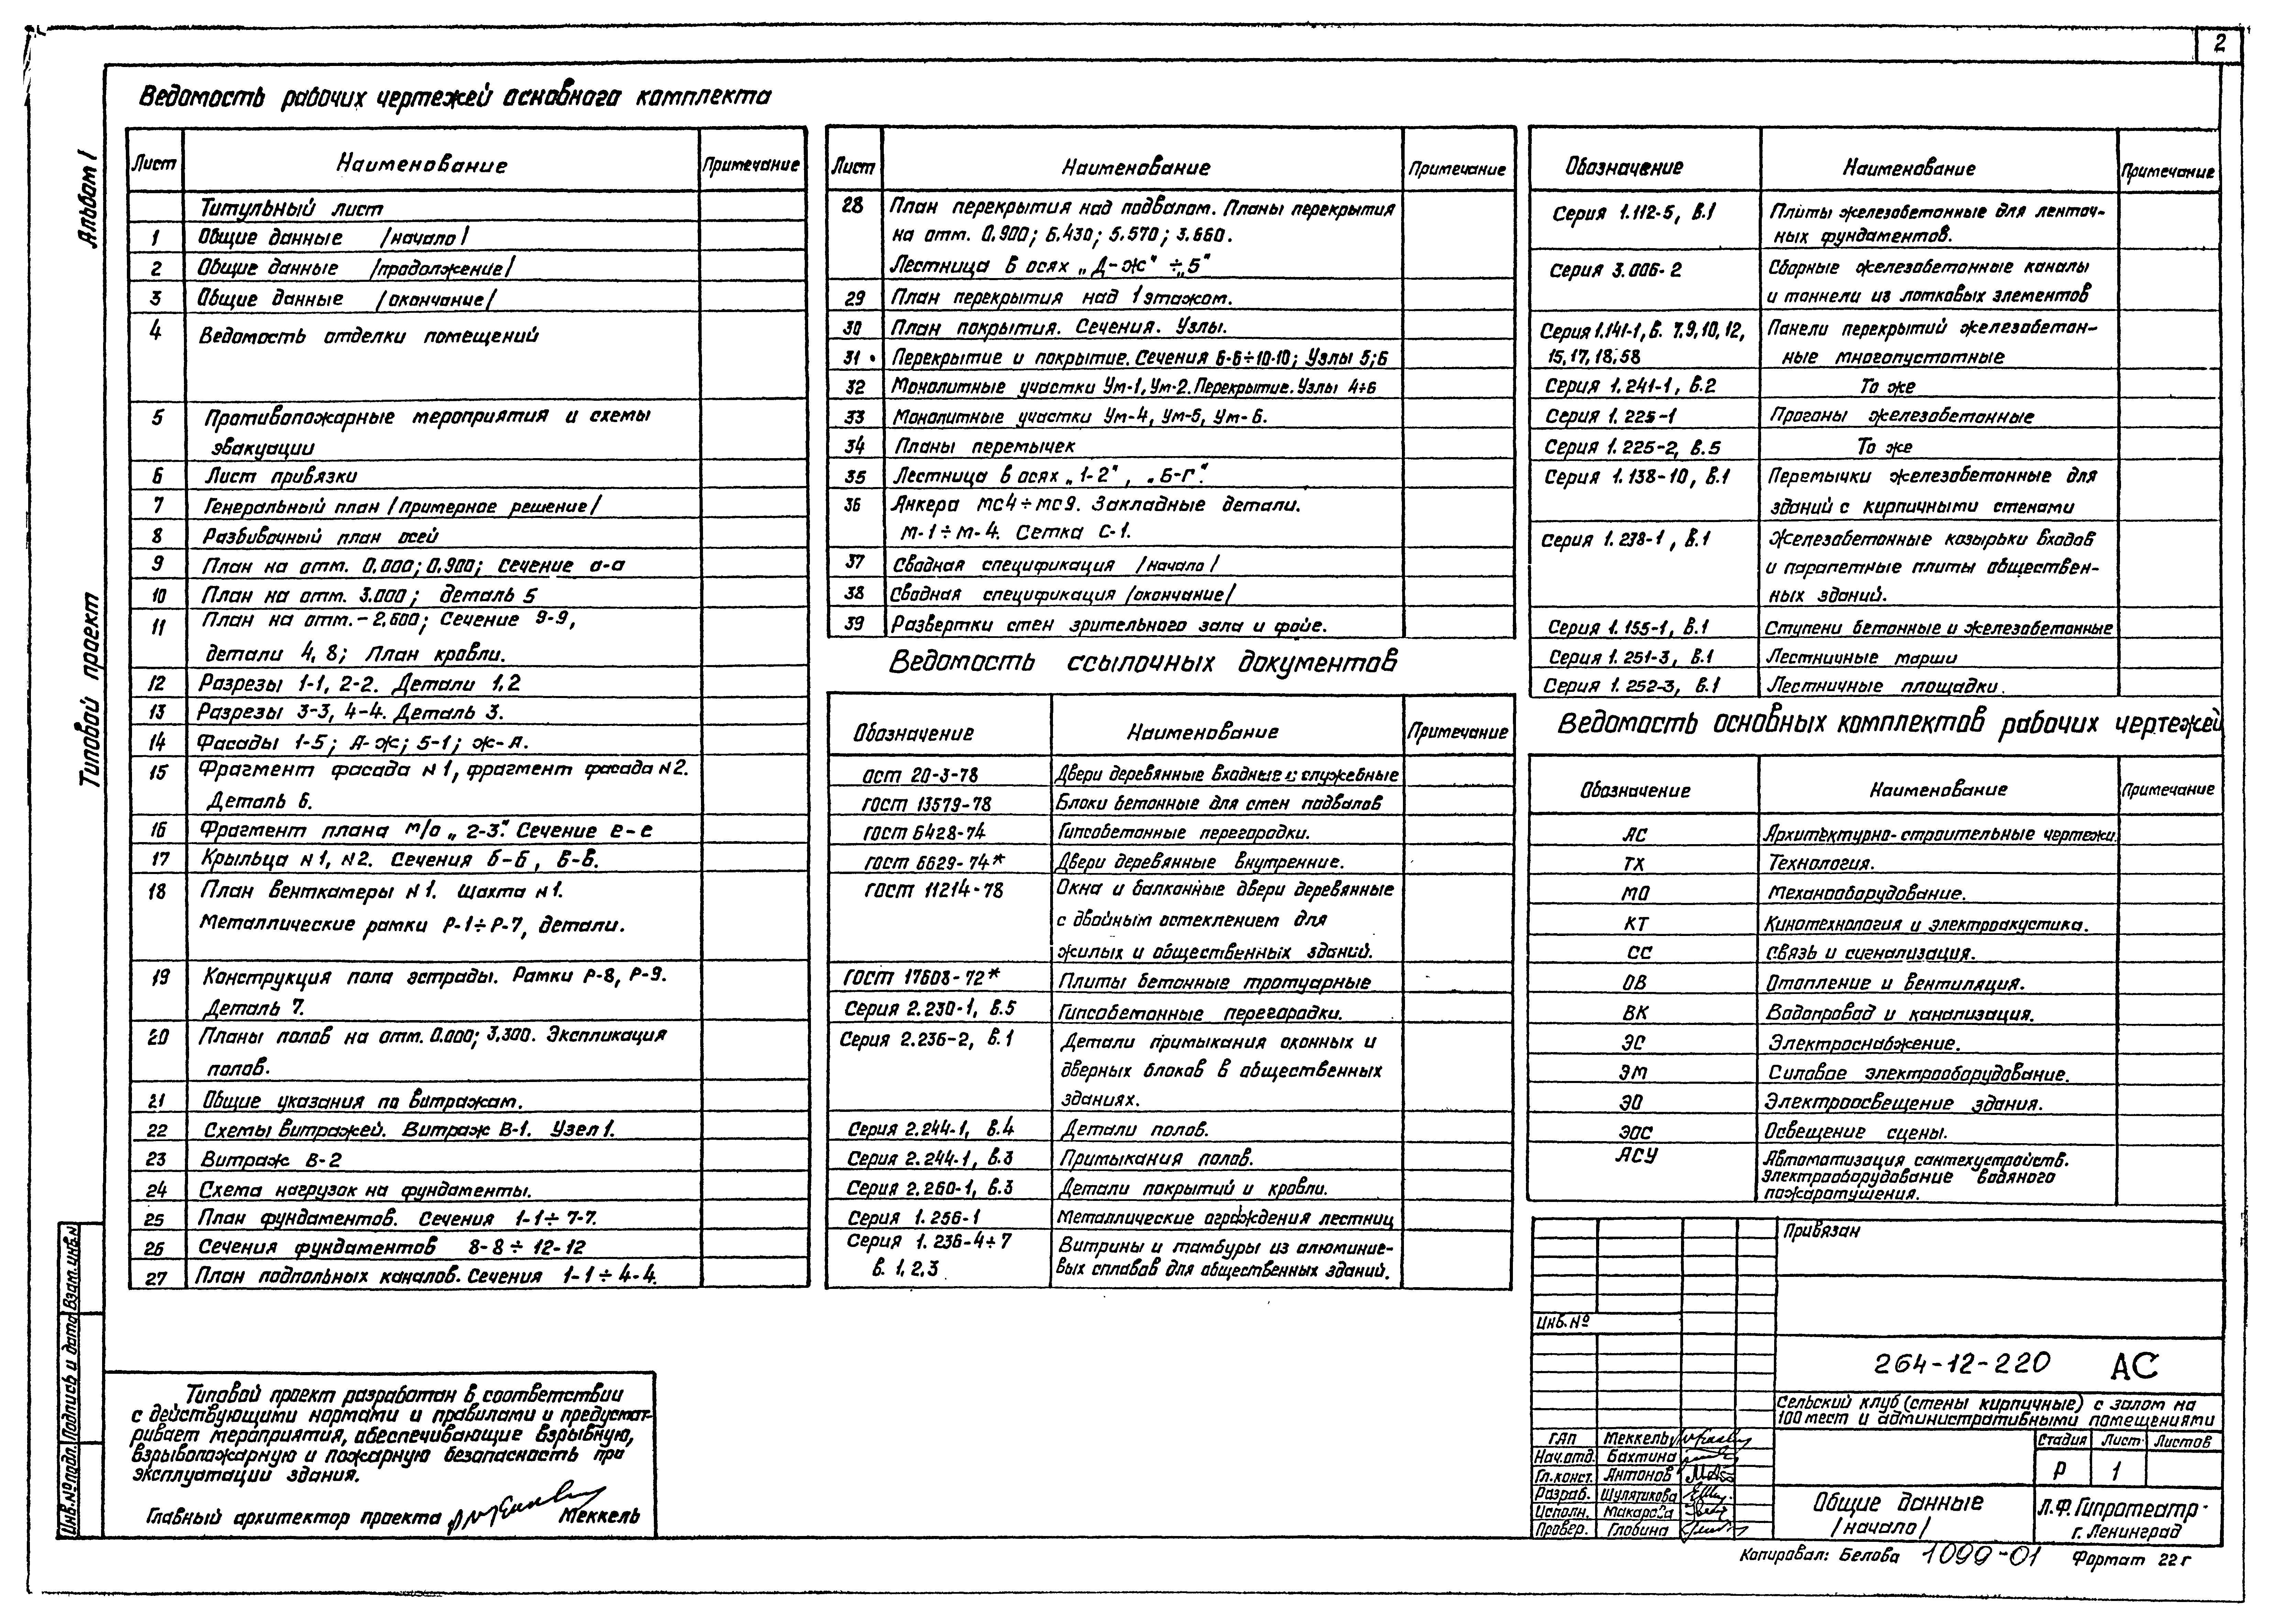 2
Альбом I
Типовой проект
Ведомость рабочих чертежей основного комплекта
Лист Наименование Примечание
Титульный лист
1 Общие данные /начало/
2 Общие данные /продолжение/
3 Общие данные /окончание/
4 Ведомость отделки помещений
5 Противопожарные мероприятия и схемы
эвакуации
6 Лист привязки
7 Генеральный план /примерное решение/
8 Разбивочный план осей
9 План на отм. 0.000; 0.900; Сечение а-а
10 План на отм. 3.000; деталь 5
11 План на отм. -2,600; Сечение 9-9,
детали 4, 8; План кровли.
12 Разрезы 1-1, 2-2. Детали 1,2
13 Разрезы 3-3, 4-4. Деталь 3.
14 Фасады 1-5; А-Ж; 5-1; Ж-А.
15 Фрагмент фасада N1, фрагмент фасада N2.
Деталь 6.
16 Фрагмент плана м/о „2-3". Сечение е-е
17 Крыльца N1, N2. Сечения б-б, в-в.
18 План венткамеры N1. Шахта N1.
Металлические рамки Р-1÷Р-7, детали.
19 Конструкция пола эстрады. Рамки Р-8, Р-9.
Деталь 7.
20 Планы полов на отм. 0.000; 3,300. Экспликация
полов.
21 Общие указания по витражам.
22 Схемы витражей. Витраж В-1. Узел 1.
23 Витраж В-2
24 Схема нагрузок на фундаменты.
25 План фундаментов. Сечения 1-1÷7-7.
26 Сечения фундаментов 8-8÷12-12
27 План подпольных каналов. Сечения 1-1÷4-4.
Лист Наименование Примечание
28 План перекрытия над подвалом. Планы перекрытия
на отм. 0.900; 6.430; 5.570; 3.660.
Лестница в осях „Д-Ж" ÷ „5"
29 План перекрытия над 1 этажом.
30 План покрытия. Сечения. Узлы.
31 Перекрытие и покрытие. Сечения 6-6÷10-10; Узлы 5;6
32 Монолитные участки Ум-1, Ум-2. Перекрытие. Узлы 4÷6
33 Монолитные участки Ум-4, Ум-5, Ум-6.
34 Планы перемычек
35 Лестница в осях „1-2", „Б-Г".
36 Анкера мс4÷мс9. Закладные детали.
м-1÷м-4. Сетка С-1.
37 Сводная спецификация /начало/
38 Сводная спецификация /окончание/
39 Развертки стен зрительного зала и фойе.
Ведомость ссылочных документов
Обозначение Наименование Примечание
ост 20-3-78 Двери деревянные входные и служебные
гост 13579-78 Блоки бетонные для стен подвалов
гост 6428-74 Гипсобетонные перегородки.
гост 6629-74* Двери деревянные внутренние.
гост 11214-78 Окна и балконные двери деревянные
с двойным остеклением для
жилых и общественных зданий.
ГОСТ 17608-72* Плиты бетонные тротуарные
Серия 2.230-1, в.5 Гипсобетонные перегородки.
Серия 2.236-2, в.1 Детали примыкания оконных и
дверных блоков в общественных
зданиях.
Серия 2.244-1, в.4 Детали полов.
Серия 2.244-1, в.3 Примыкания полов.
Серия 2.260-1, в.3 Детали покрытий и кровли.
Серия 1.256-1 Металлические ограждения лестниц
Серия 1.236-4÷7 Витрины и тамбуры из алюминие-
в. 1,2,3 вых сплавов для общественных зданий.
Обозначение Наименование Примечание
Серия 1.112-5, в.1 Плиты железобетонные для ленточ-
ных фундаментов.
Серия 3.006-2 Сборные железобетонные каналы
и тоннели из лотковых элементов
Серия 1.141-1, в. 7,9,10,12, Панели перекрытий железобетон-
15,17,18;58 ные многопустотные
Серия 1.241-1, в.2 То же
Серия 1.225-1 Прогоны железобетонные
Серия 1.225-2, в.5 То же
Серия 1.138-10, в.1 Перемычки железобетонные для
зданий с кирпичными стенами
Серия 1.238-1, в.1 Железобетонные козырьки входов
и парапетные плиты обществен-
ных зданий.
Серия 1.155-1, в.1 Ступени бетонные и железобетонные
Серия 1.251-3, в.1 Лестничные марши
Серия 1.252-3, в.1 Лестничные площадки.
Ведомость основных комплектов рабочих чертежей
Обозначение Наименование Примечание
АС Архитектурно-строительные чертежи.
ТХ Технология.
МО Механооборудование.
КТ Кинотехнология и электроакустика.
СС Связь и сигнализация.
ОВ Отопление и вентиляция.
ВК Водопровод и канализация.
ЭС Электроснабжение.
ЭМ Силовое электрооборудование.
ЭО Электроосвещение здания.
ЭОС Освещение сцены.
АСУ Автоматизация сантехустройств.
Электрооборудование водяного
пожаротушения.
Типовой проект разработан в соответствии
с действующими нормами и правилами и предусмат-
ривает мероприятия, обеспечивающие взрывную,
взрывопожарную и пожарную безопасность при
эксплуатации здания.
Главный архитектор проекта Меккель
Инв.№подл. Подпись и дата Взам.инв.N
Привязан
Инв.№
264-12-220 АС
Сельский клуб (стены кирпичные) с залом на
100 мест и административными помещениями
ГАП Меккель
Нач.отд. Бахтина
Гл.конст. Антонов
Разраб. Шулятикова
Исполн. Макарова
Провер. Глобина
Стадия Лист Листов
Р 1
Общие данные
/начало/
Л.Ф. Гипротеатр
г. Ленинград
Копировал: Белова 1099-01 Формат 22г